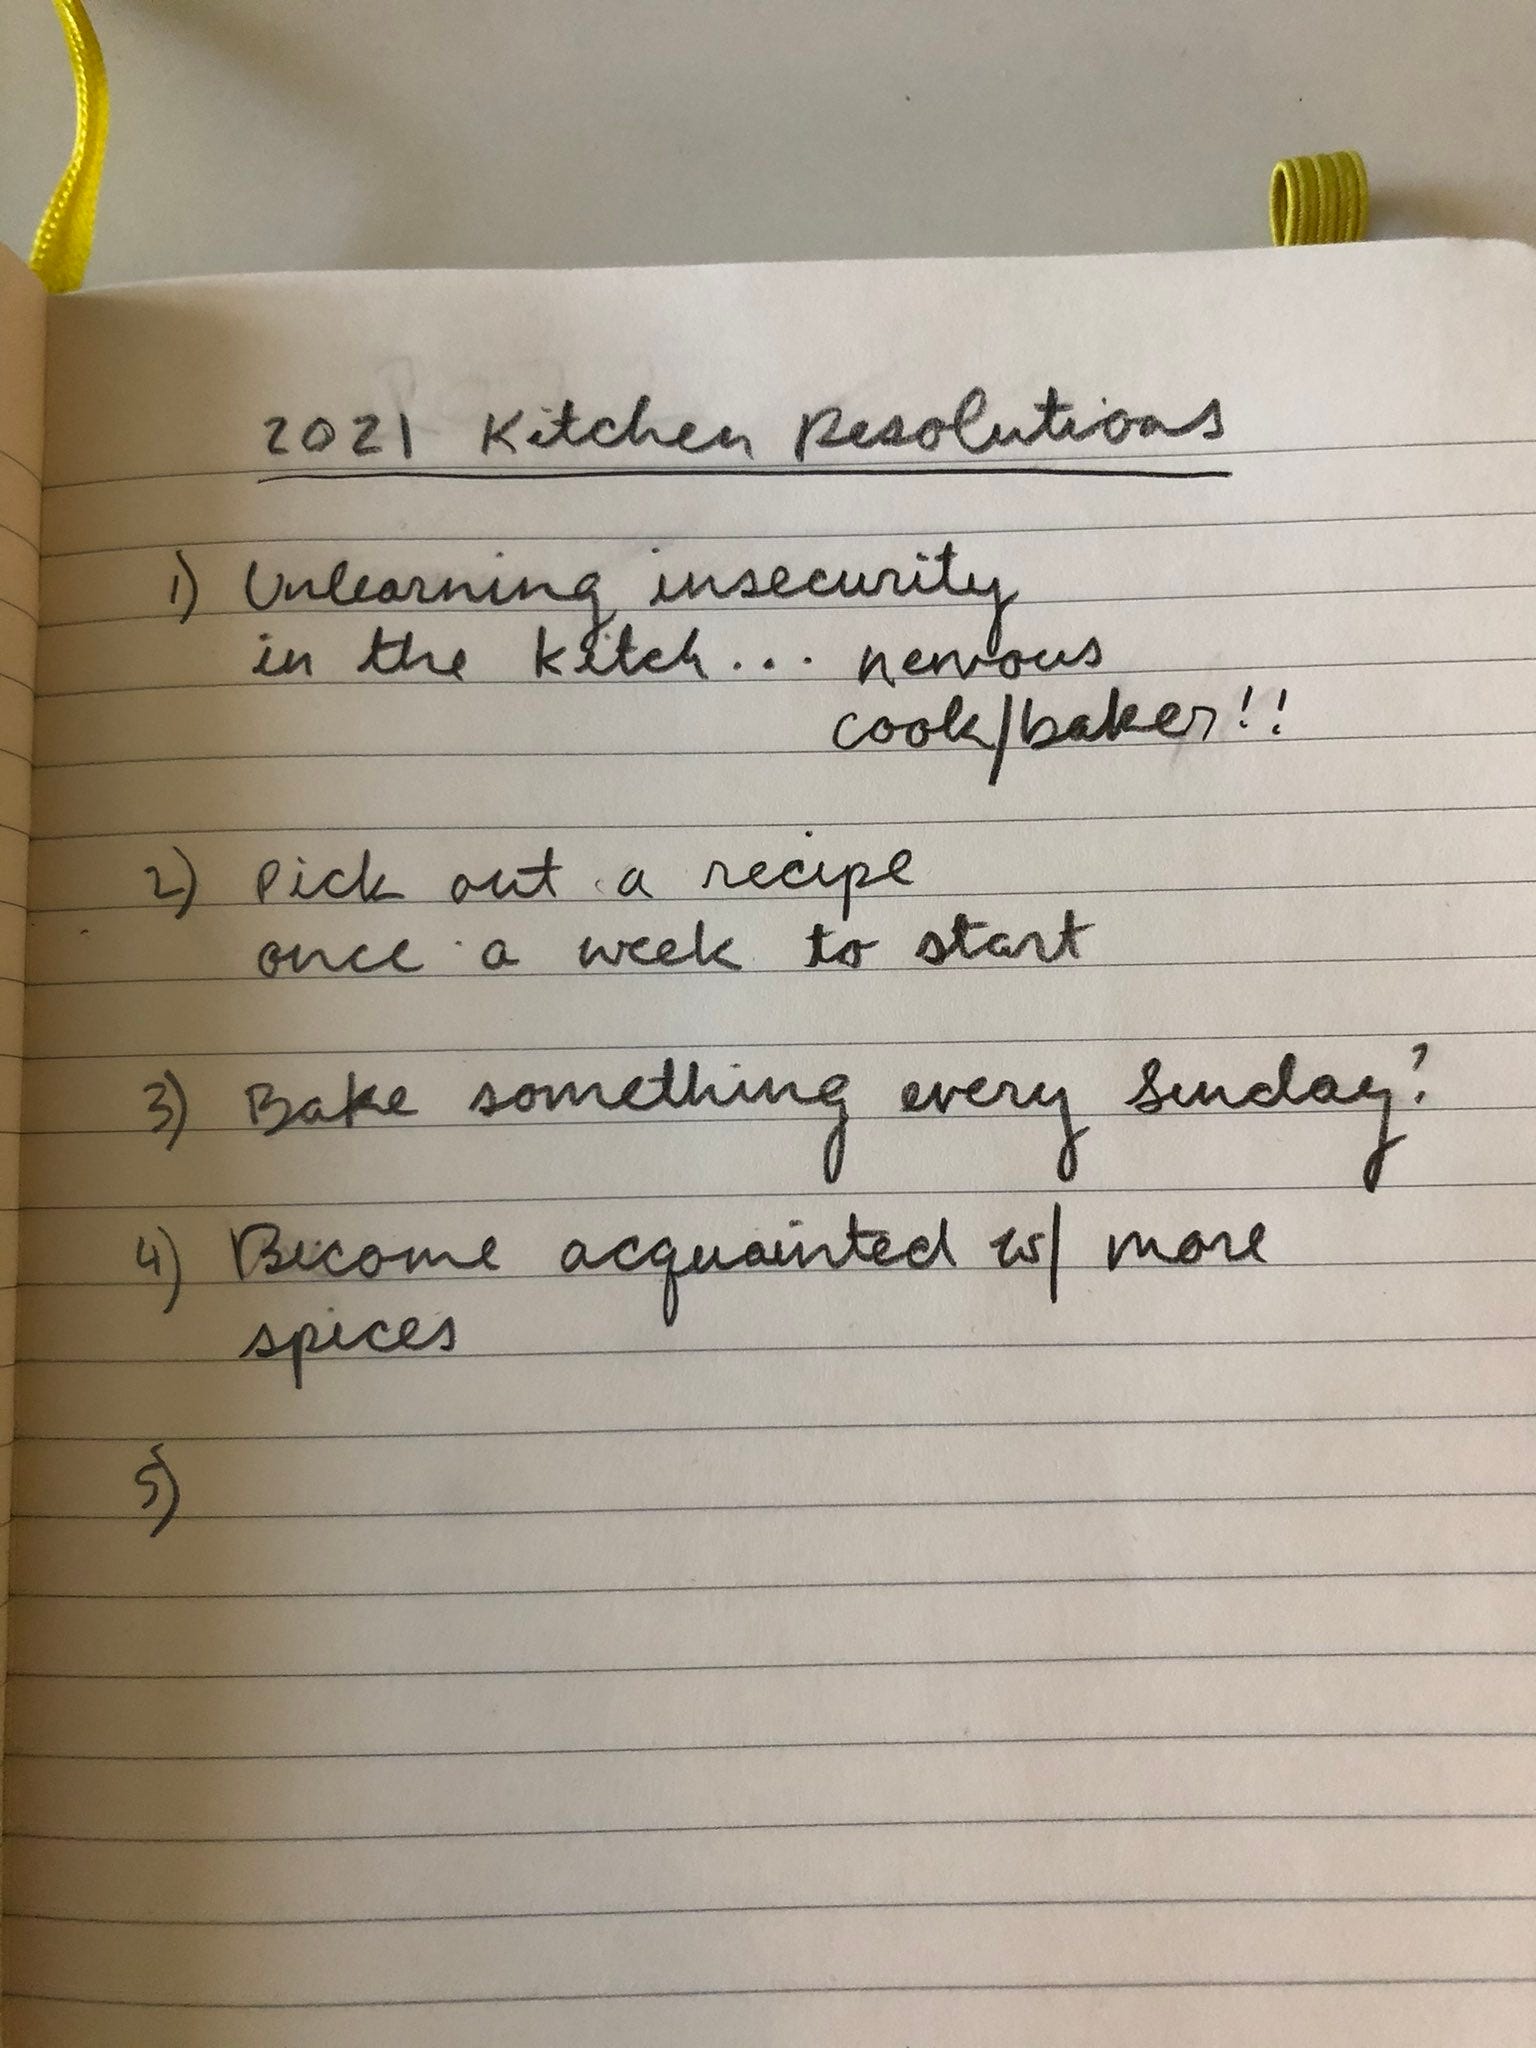 2021 Kitchen Resolutions
1) Unlearning insecurity
in the kitch... nervous
cook/baker!!
2) Pick out a recipe
once a week to start
3) Bake something every Sunday?
4) Become acquainted w/ more
spices
5)